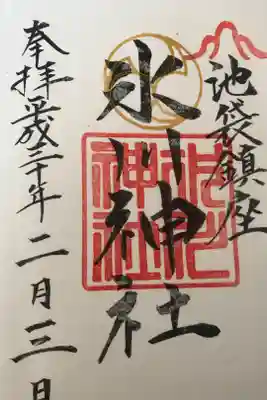 池袋鎮座
氷川神社
氷川神社
奉拝 平成三十年二月三日